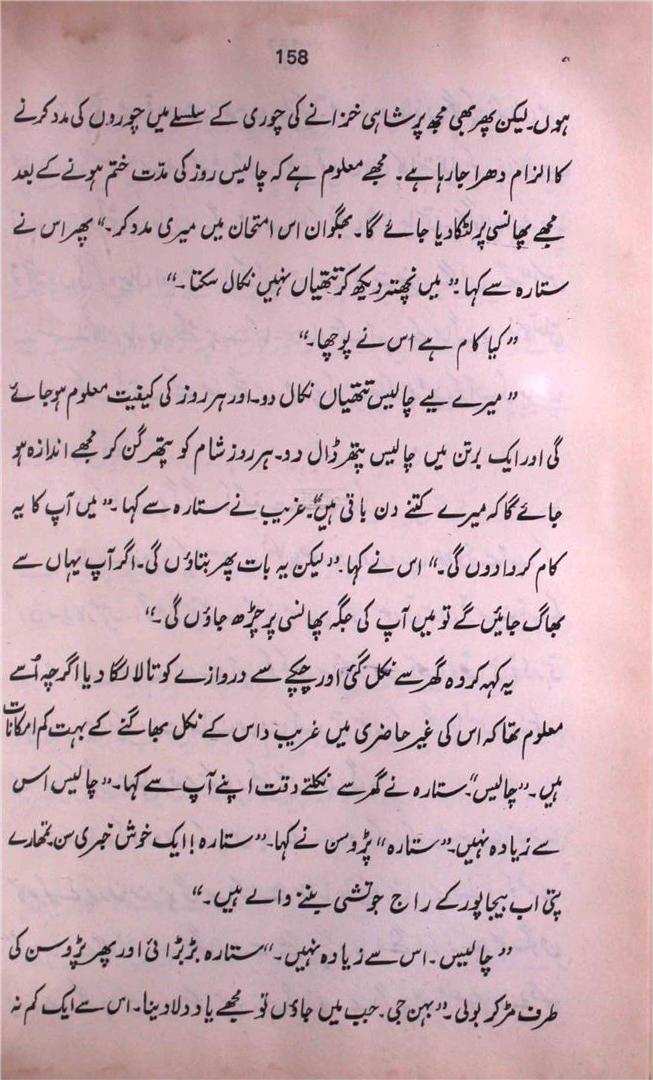 158
ہوں۔ لیکن پھر بھی مجھ پر شاہی خزانے کی چوری کے سلسلے میں چوروں کی مدد کرنے
کا الزام دھرا جا رہا ہے۔ مجھے معلوم ہے کہ چالیس روز کی مدّت ختم ہونے کے بعد
مجھے پھانسی پر لٹکا دیا جائے گا۔ بھگوان اس امتحان میں میری مدد کر۔“ پھر اس نے
ستارہ سے کہا۔ ”میں نچھتر دیکھ کر تتھیاں نہیں نکال سکتا۔“
”کیا کام ہے اس نے پوچھا۔“
”میرے لیے چالیس تتھیاں نکال دو۔ اور ہر روز کی کیفیت معلوم ہو جائے
گی اور ایک برتن میں چالیس پتھر ڈال دو۔ ہر روز شام کو پتھر گن کر مجھے اندازہ ہو
جائے گا کہ میرے کتنے دن باقی ہیں“۔ غریب نے ستارہ سے کہا۔ ”میں آپ کا یہ
کام کروا دوں گی۔“ اس نے کہا۔ ”لیکن یہ بات پھر بتاؤں گی۔ اگر آپ یہاں سے
بھاگ جائیں گے تو میں آپ کی جگہ پھانسی پر چڑھ جاؤں گی۔“
یہ کہہ کر وہ گھر سے نکل گئی اور چپکے سے دروازے کو تالا لگا دیا اگرچہ اُسے
معلوم تھا کہ اس کی غیر حاضری میں غریب داس کے نکل بھاگنے کے بہت کم امکانات
ہیں۔ ”چالیس“۔ ستارہ نے گھر سے نکلتے وقت اپنے آپ سے کہا۔ ”چالیس اس
سے زیادہ نہیں۔ ”ستارہ“ پڑوسن نے کہا۔ ”ستارہ! ایک خوش خبری سن تمھارے
پتی اب بیجاپور کے راج جوتشی بننے والے ہیں۔“
”چالیس۔ اس سے زیادہ نہیں۔“ ستارہ بڑبڑائی اور پھر پڑوسن کی
طرف مڑ کر بولی۔ ”بہن جی۔ جب میں جاؤں تو مجھے یاد دلا دینا۔ اس سے ایک کم نہ